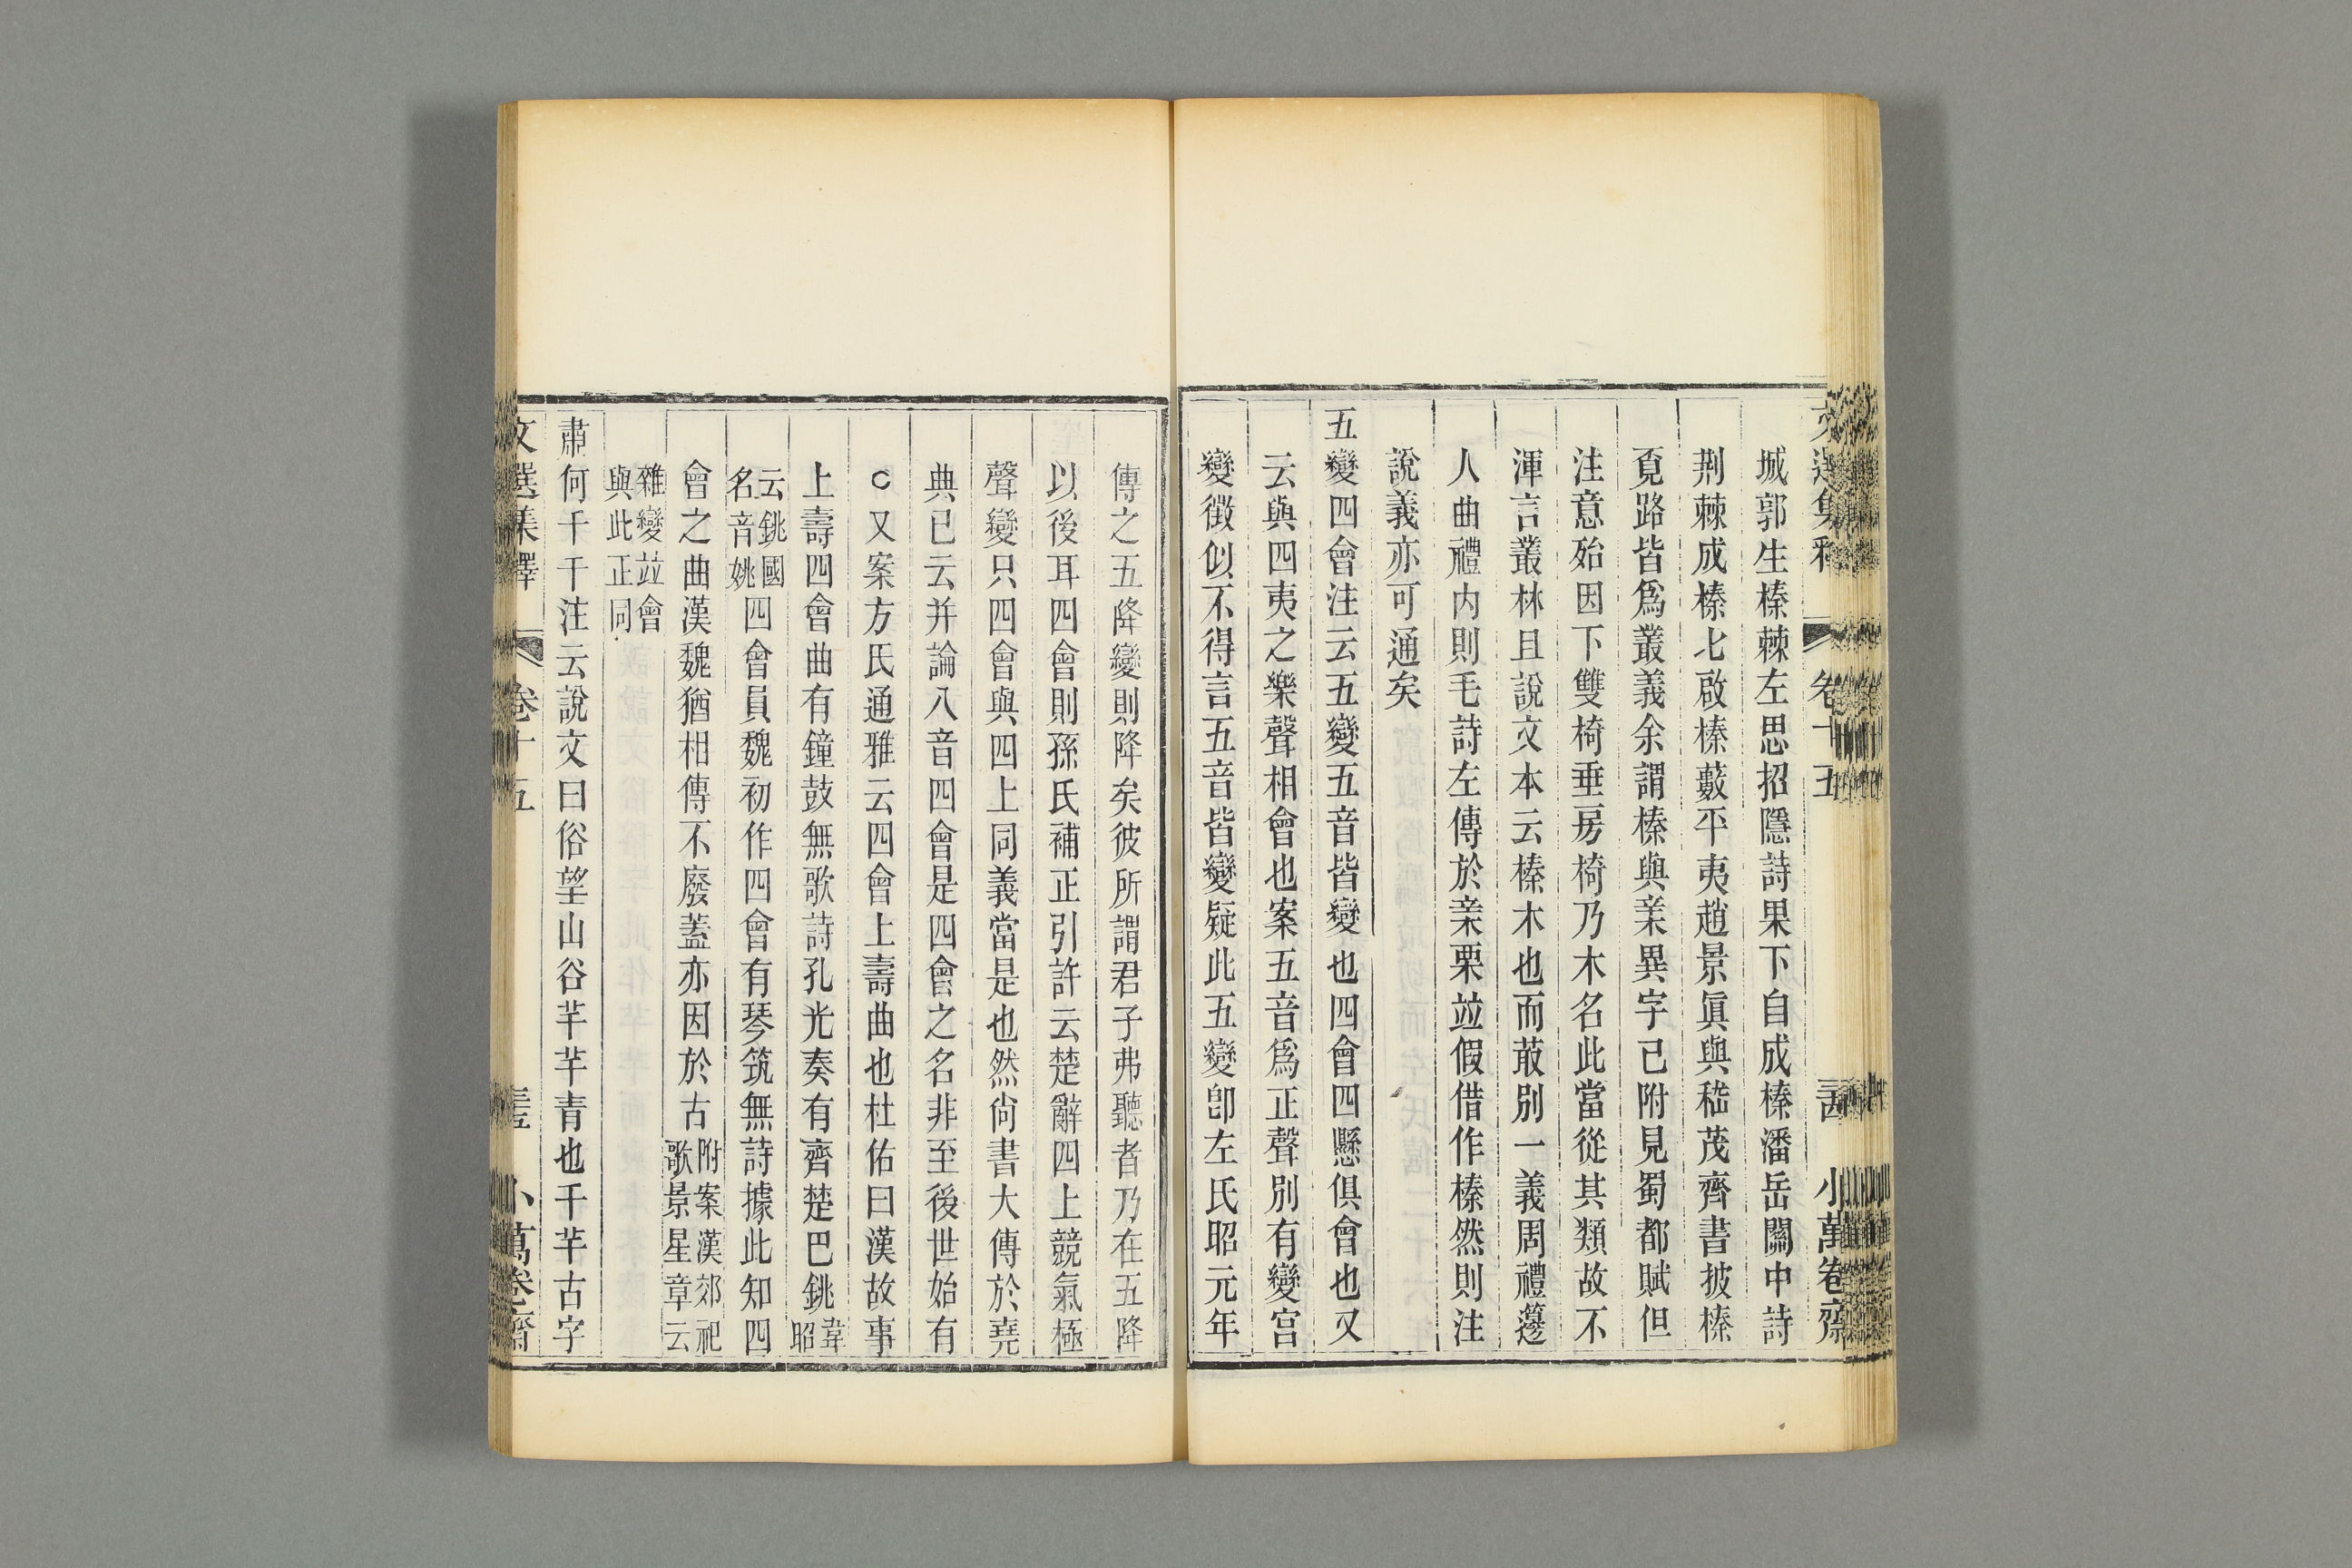 城郭生榛棘左思招隱詩果下自成榛潘岳關中詩
荆棘成榛丘啟榛藪平夷趙景眞與嵇茂齊書披榛
覓路皆爲叢義余謂榛與亲異字已附見蜀都賦但
注意殆因下雙椅垂房椅乃木名此當從其類故不
渾言叢林且說文本云榛木也而菆別一義周禮籩
人曲禮内則毛詩左傳於亲栗竝假借作榛然則注
說義亦可通矣
五變四會注云五變五音皆變也四會四懸俱會也又
云與四夷之樂聲相會也案五音爲正聲別有變宮
變徵似不得言五音皆變疑此五變卽左氏昭元年
傳之五降變則降矣彼所謂君子弗聽者乃在五降
以後耳四會則孫氏補正引許云楚辭四上競氣極
聲變只四會與四上同義當是也然尙書大傳於堯
典已云并論八音四會是四會之名非至後世始有
○又案方氏通雅云四會上壽曲也杜佑曰漢故事
上壽四會曲有鐘鼓無歌詩孔光奏有齊楚巴銚韋昭
云銚國名音姚四會員魏初作四會有琴筑無詩據此知四
會之曲漢魏猶相傳不廢蓋亦因於古附案漢郊祀歌景星章云
雜變竝會與此正同
肅何千千注云說文曰俗望山谷芊芊青也千芊古字
文選集釋 卷十五 小萬卷齋